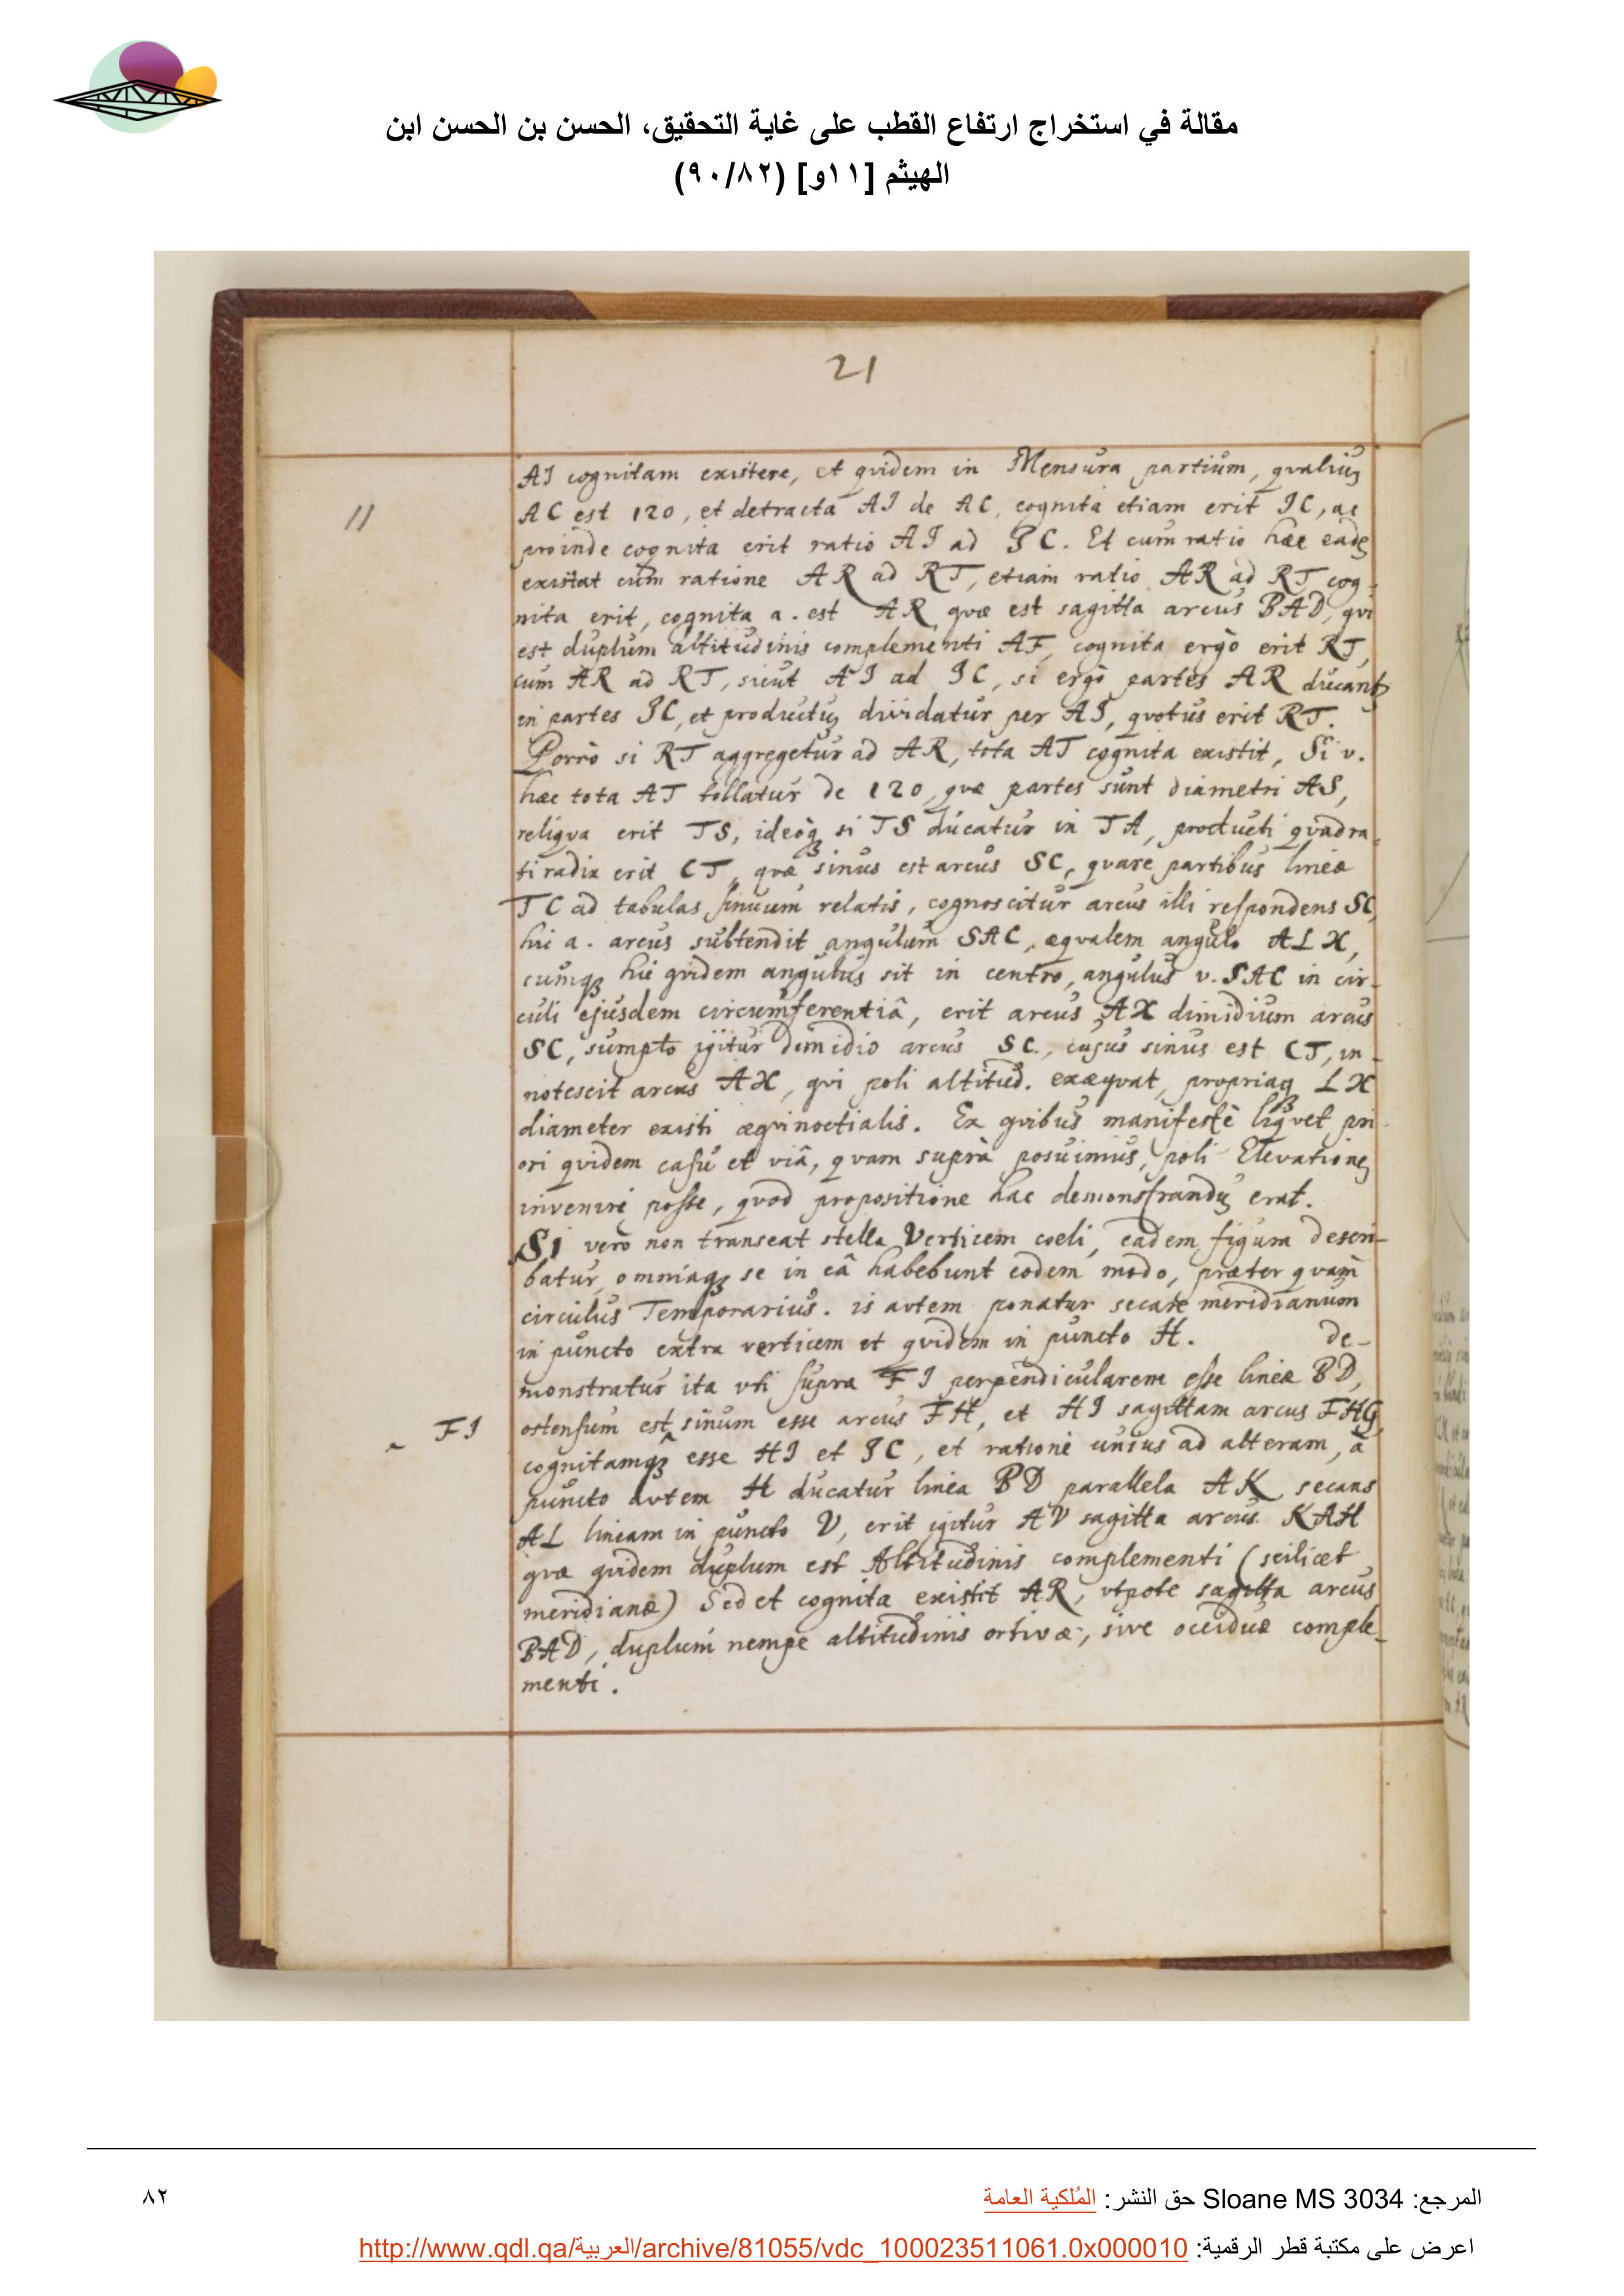 مقالة في استخراج ارتفاع القطب على غاية التحقيق، الحسن بن الحسن ابن
الهيثم [١١و] (٩٠/٨٢)
21
AI cognitam existere, et quidem in Mensura partium, qualiuȝ
11
AC est 120, et detracta AI de AC, cognita etiam erit IC, ac
proinde cognita erit ratio AI ad IC. Et cum ratio hæc eadē
existat cum ratione AR ad RT, etiam ratio AR ad RT cog-
nita erit, cognita a. est AR, quæ est sagitta arcus BAD, qui
est duplum altitudinis complementi AF, cognita ergò erit RT,
cum AR ad RT, sicut AI ad IC, si ergò partes AR ducantȝ
in partes IC, et productuȝ dividatur per AI, quotus erit RT.
Porrò si RT aggregetur ad AR, tota AT cognita existit, Si v.
hæc tota AT tollatur de 120, quæ partes sunt diametri AS,
reliqua erit TS, ideoqȝ si TS ducatur in TA, producti quadra-
ti radix erit CT, quæ sinus est arcus SC, quare partibus lineæ
TC ad tabulas sinuum relatis, cognoscitur arcus illi respondens SC,
hic a. arcus subtendit angulum SAC, æqualem angulo ALX,
cumqȝ hic quidem angulus sit in centro, angulus v. SAC in cir-
culi ejusdem circumferentiâ, erit arcus AX dimidium arcus
SC, sumpto igitur dimidio arcus SC, cujus sinus est CT, in-
notescit arcus AX, qui poli altitud. exæquat, propriaqȝ LX
diameter existi æquinoctialis. Ex quibus manifestè liquet pri-
ori quidem casu et viâ, quam suprà posuimus, poli Elevationeȝ
inveniri posse, quod propositione hac demonstranduȝ erat.
SI vero non transeat stella Verticem coeli, eadem figura descri-
batur, omniaqȝ se in eâ habebunt eodem modo, præter quàm
circulus Temporarius. is autem ponatur secare meridianum
in puncto extra verticem et quidem in puncto H. de-
monstratur ita uti supra FI perpendicularem esse lineæ BD,
FI
ostensum est sinum esse arcus FH, et HI sagittam arcus FHG,
cognitamqȝ esse HI et IC, et rationē unius ad alteram, à
puncto autem H ducatur linea BD parallela AK secans
AL lineam in puncto V, erit igitur AV sagitta arcus KAH
quæ quidem duplum est Altitudinis complementi (scilicet
meridianæ) Sed et cognita existit AR, utpote sagitta arcus
BAD, duplum nempe altitudinis ortivæ, sive occiduæ comple-
menti.
المرجع: Sloane MS 3034 حق النشر: المُلكية العامة
٨٢
اعرض على مكتبة قطر الرقمية: http://www.qdl.qa/العربية/archive/81055/vdc_100023511061.0x000010